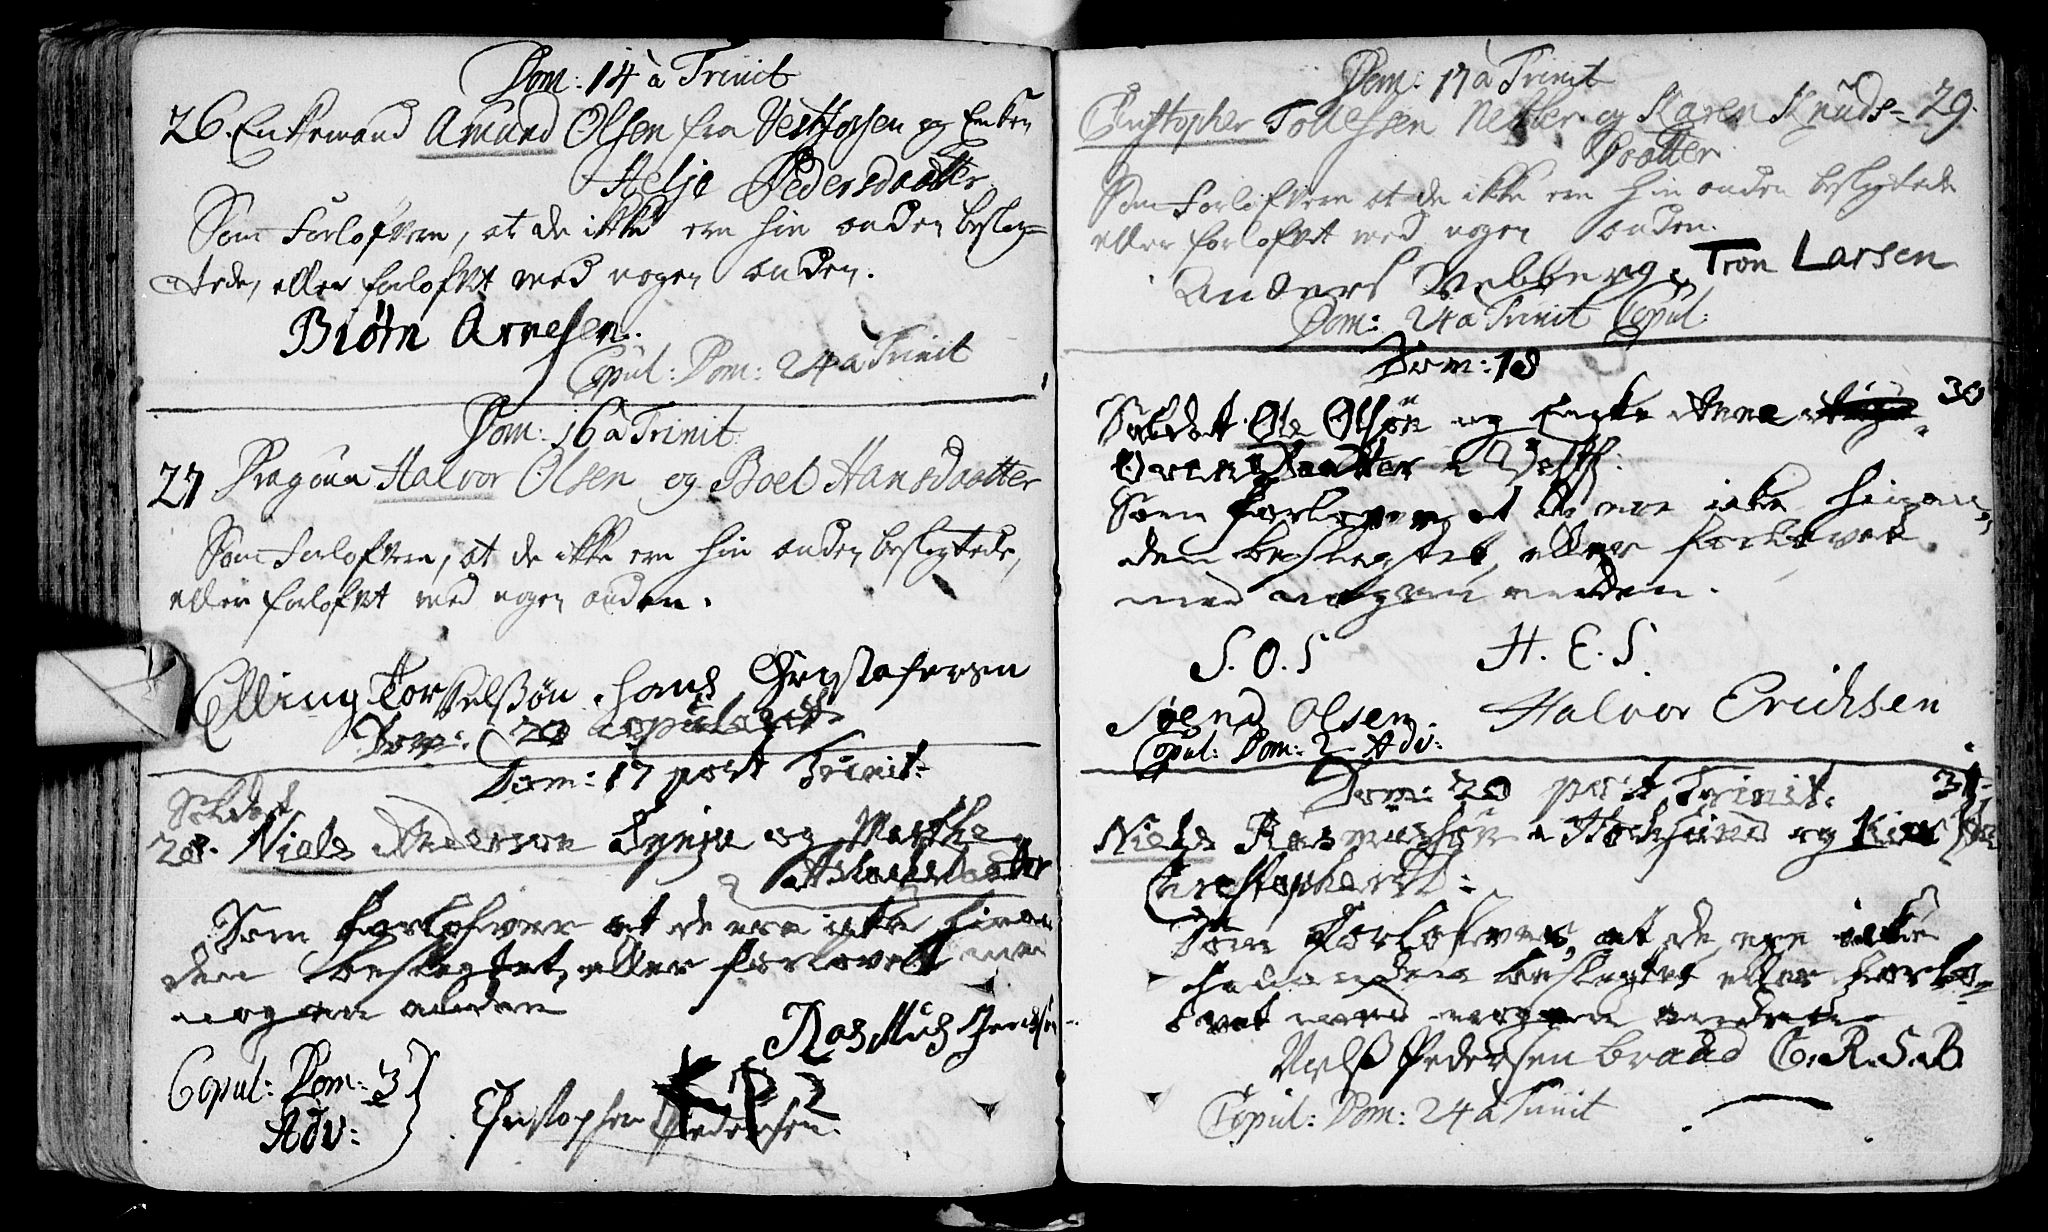 Dom: 14 a Trinit
26. Enkemand Amund Olsen fra Vestfossen og Enken
Helje Pedersdaatter
Som Forlofvere, at de ikke ere hin anden besleg-
tede, eller forlofvet med nogen anden.
Biørn Arnesen.
Copul: Dom: 24 a Trinit
Dom: 16 a Trinit:
27 Dragoun Halvor Olsen og Boel Hansdaatter
Som Forlofvere, at de ikke ere hin anden beslegtede,
eller forlofvet med nogen anden.
Elling Torkelsøn. Hans Christofersen
Dom: 20 copuleret
Dom: 17 post Trinit:
Soldat
28. Niels Pedersen og Marthe
Som forlofver at de ere ikke hinan
den beslegtet, eller forlovet med
nogen anden
Copul: Dom: 3
Adv:
Christopher Pedersen.
Dom: 17 a Trinit
Christopher Tollefsen og Karen Knuds- 29.
Daatter
Som Forlofvere at de ikke ere hin anden beslegtede
eller forlofvet med nogen anden.
Anders Tron Larsen
Dom: 24 a Trinit Copul:
Dom: 18
Soldat Ole Olsøn og Enke Anne 30
Daatter Vestf:
Som forlover at de ere ikke hinan-
den beslegtet, eller forlovet
med nogen anden.
S. O. S H. E. S.
Svend Olsen. Halvor Erichsen
Copul: Dom: 2 Adv:
Dom: 20 post Trinit. 31.
Niels Rasmusøn Hochsund og
Christophersd:
Som Forlofver, at de ere ikke
hinanden beslegtet eller forlo-
vet med nogen anden
Niels Pedersen braad C. R. S. B
Copul: Dom: 24 a Trinit